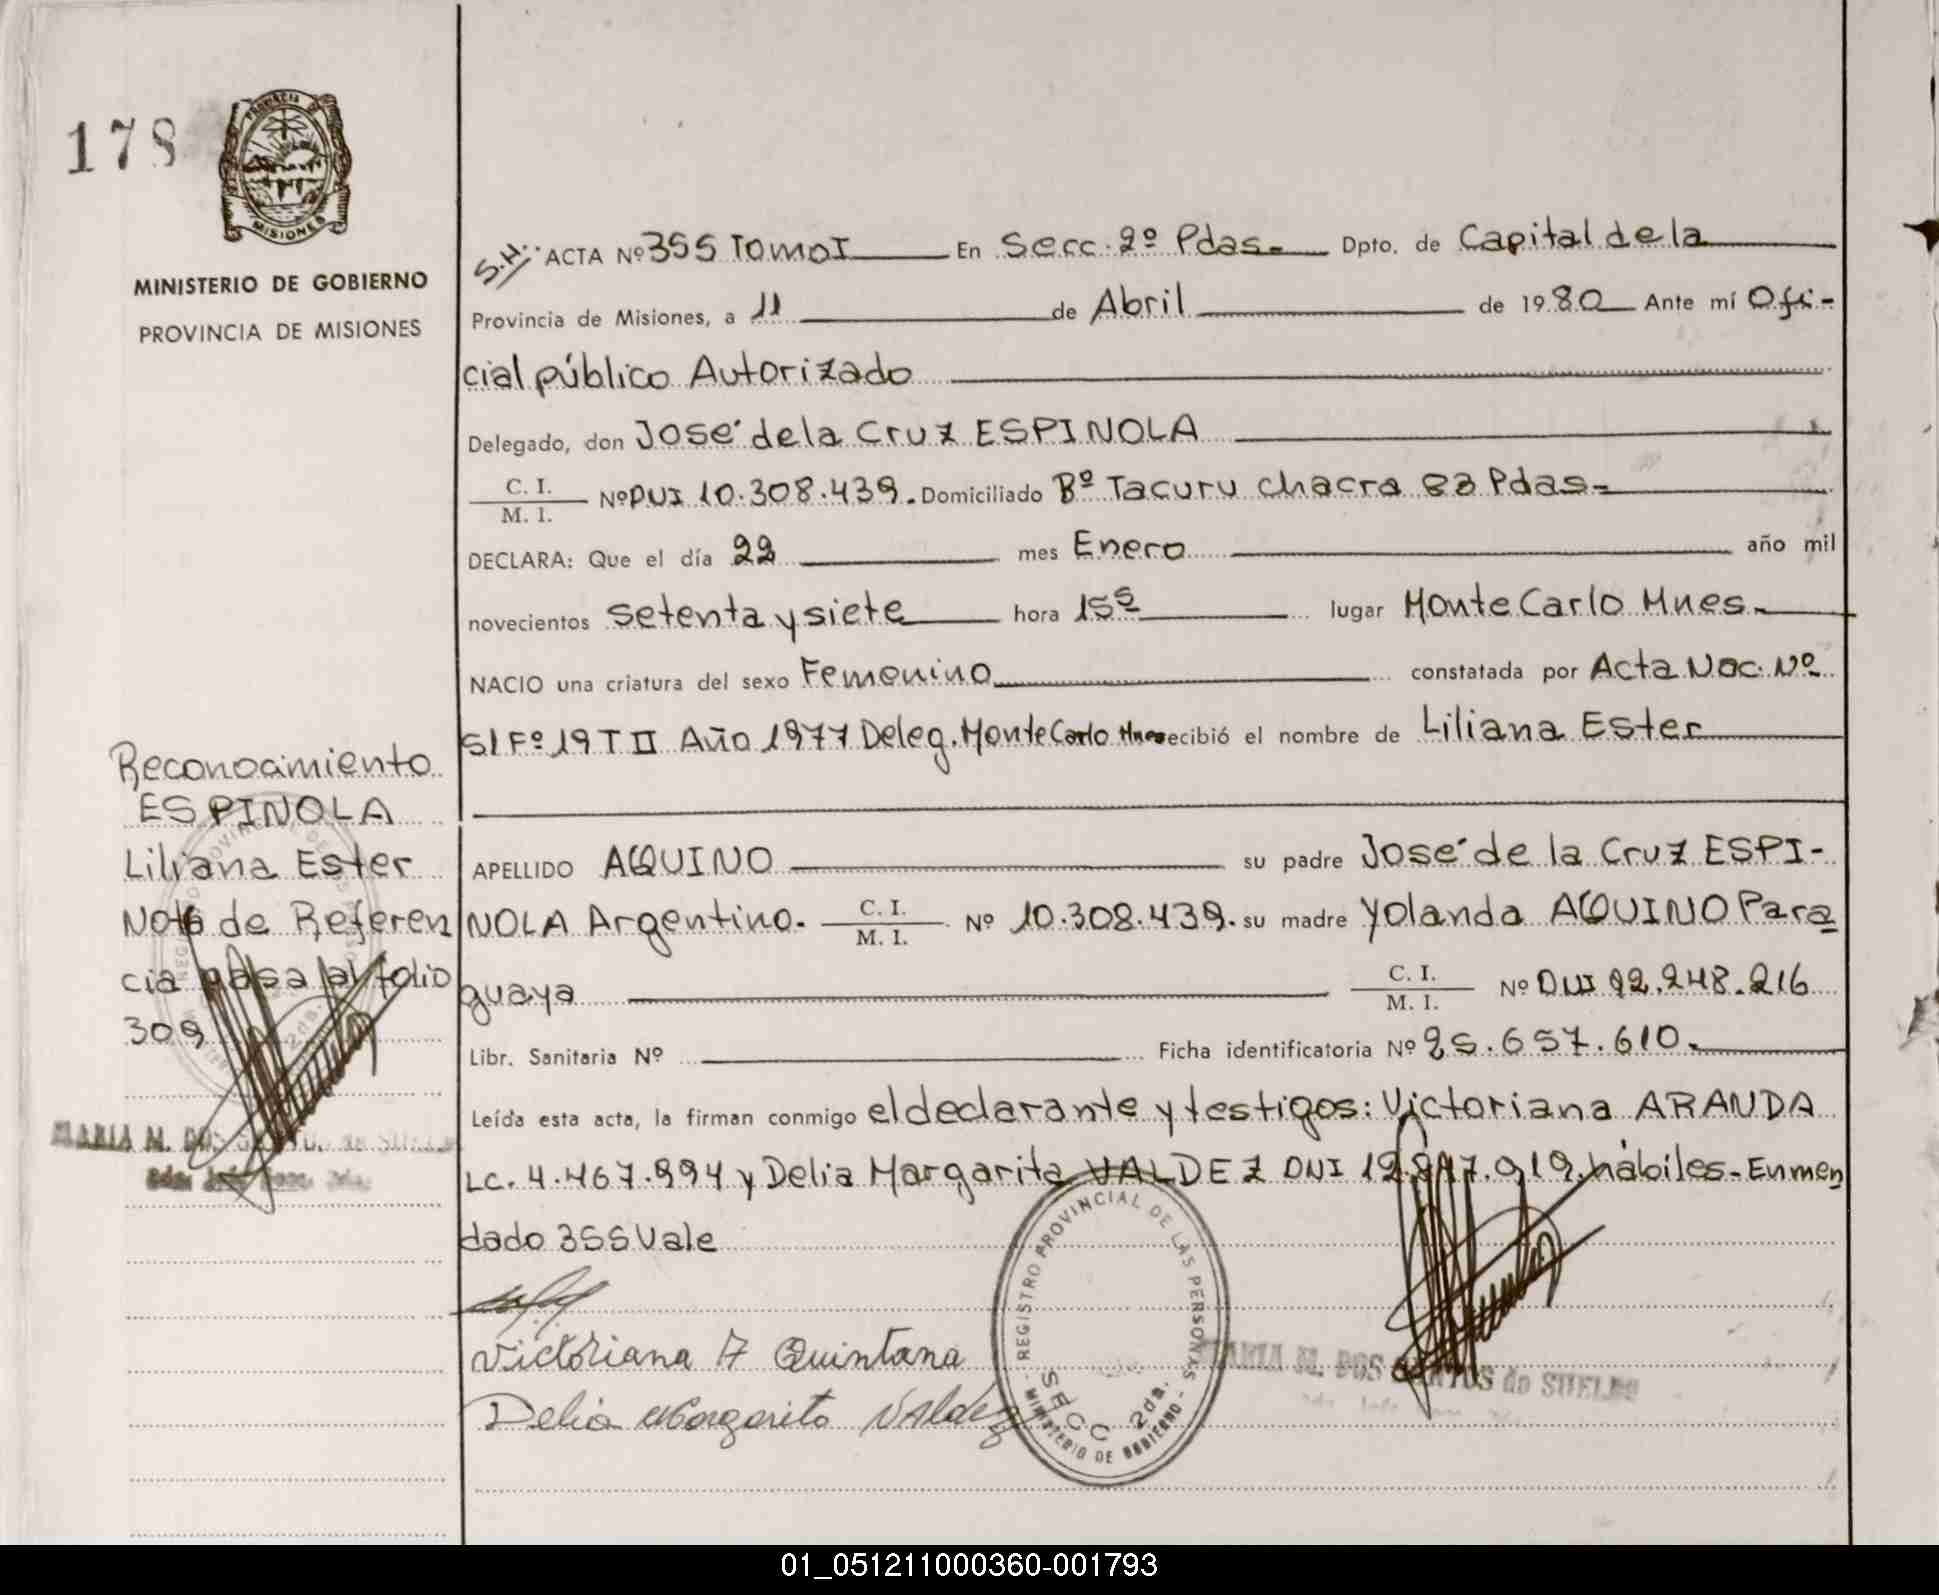 178
PROVINCIA DE
MISIONES
MINISTERIO DE GOBIERNO
PROVINCIA DE MISIONES
S.H. ACTA Nº 355 Tomo I En Secc. 2º Pdas. Dpto. de Capital de la
Provincia de Misiones, a 11 de Abril de 1980 Ante mí Ofi-
cial público Autorizado
Delegado, don José de la Cruz ESPINOLA
C. I.
M. I. Nº DUI 10.308.439. Domiciliado Bº Tacuru chacra 83 Pdas-
DECLARA: Que el día 22 mes Enero año mil
novecientos setenta y siete hora 15 lugar Monte Carlo Mnes.
NACIO una criatura del sexo Femenino constatada por Acta Nac. Nº
51 Fº 19 T II Año 1977 Deleg. Monte Carlo Mnes recibió el nombre de Liliana Ester
APELLIDO AQUINO su padre José de la Cruz ESPI-
NOLA Argentino. C. I.
M. I. Nº 10.308.439. su madre Yolanda AQUINO Para
guaya C. I.
M. I. Nº DUI 92.248.216
Libr. Sanitaria Nº Ficha identificatoria Nº 25.657.610.
Leída esta acta, la firman conmigo el declarante y testigos: Victoriana ARANDA
LC. 4.467.994 y Delia Margarita VALDEZ DNI 12. .919. hábiles- Enmen
dado 355 Vale
Victoriana A Quintana
Delia Margarita Valdez
Reconocimiento
ESPINOLA
Liliana Ester
Nota de Referen
cia pasa al folio
309
REGISTRO PROVINCIAL DE LAS PERSONAS
SECC 2da.
MINISTERIO DE GOBIERNO
MARIA M. DOS SANTOS de SUELDO
01_051211000360-001793